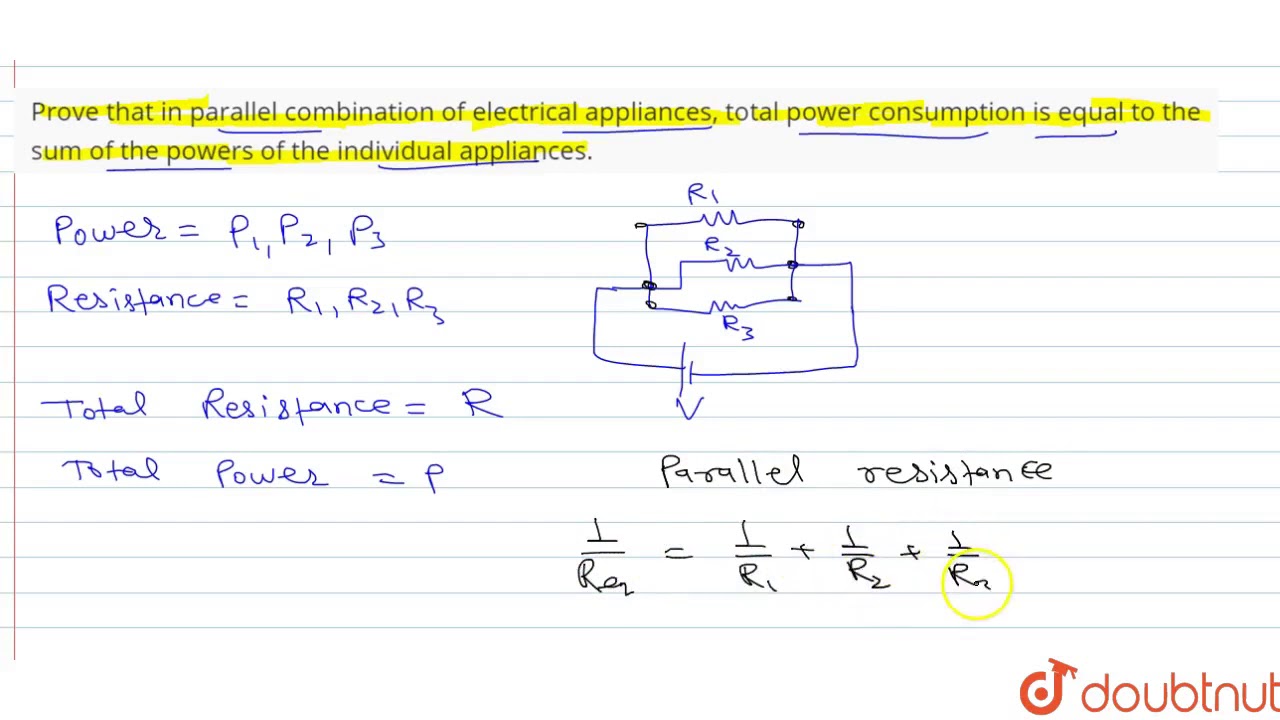 Prove that in parallel combination of electrical appliances, total power consumption is equal to the
sum of the powers of the individual appliances.
Power = P1, P2, P3
Resistance = R1, R2, R3
Total Resistance = R
Total Power = P
R1
R2
R3
V
Parallel resistance
1/Req = 1/R1 + 1/R2 + 1/R
doubtnut